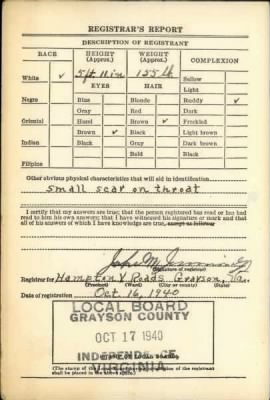 REGISTRAR'S REPORT
DESCRIPTION OF REGISTRANT
RACE HEIGHT (Approx.) WEIGHT (Approx.) COMPLEXION
White ✓ 5ft 11in 155 lb Sallow
EYES HAIR Light
Negro Blue Blonde Ruddy ✓
Gray Red Dark
Oriental Hazel Brown ✓ Freckled
Brown ✓ Black Light brown
Indian Black Gray Dark brown
Bald Black
Filipino
Other obvious physical characteristics that will aid in identification
small scar on throat
I certify that my answers are true; that the person registered has read or has had
read to him his own answers; that I have witnessed his signature or mark and that
all of his answers of which I have knowledge are true, except as follows:
(Signature of registrar)
Registrar for Hampton X Roads Grayson, Va.
(Precinct) (Ward) (City or county) (State)
Date of registration Oct 16, 1940
LOCAL BOARD
GRAYSON COUNTY
OCT 17 1940
INDEPENDENCE
VIRGINIA
(STAMP OF LOCAL BOARD)
(The stamp of the Local Board
shall be placed in the above space.)